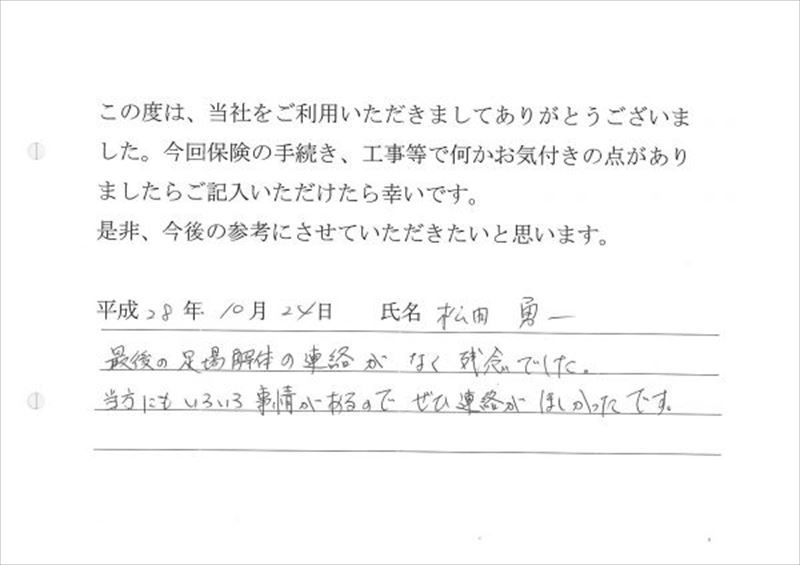 この度は、当社をご利用いただきましてありがとうございま
した。今回保険の手続き、工事等で何かお気付きの点があり
ましたらご記入いただけたら幸いです。
是非、今後の参考にさせていただきたいと思います。
平成28年 10月 24日 氏名 松田 勇一
最後の足場解体の連絡が なく 残念でした。
当方にも いろいろ 事情があるので ぜひ連絡が ほしかったです。